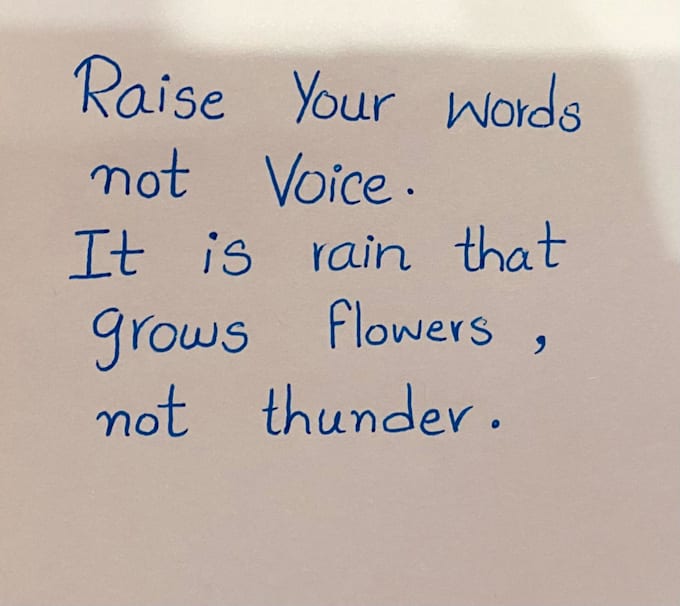 Raise Your words
not Voice.
It is rain that
grows flowers,
not thunder.